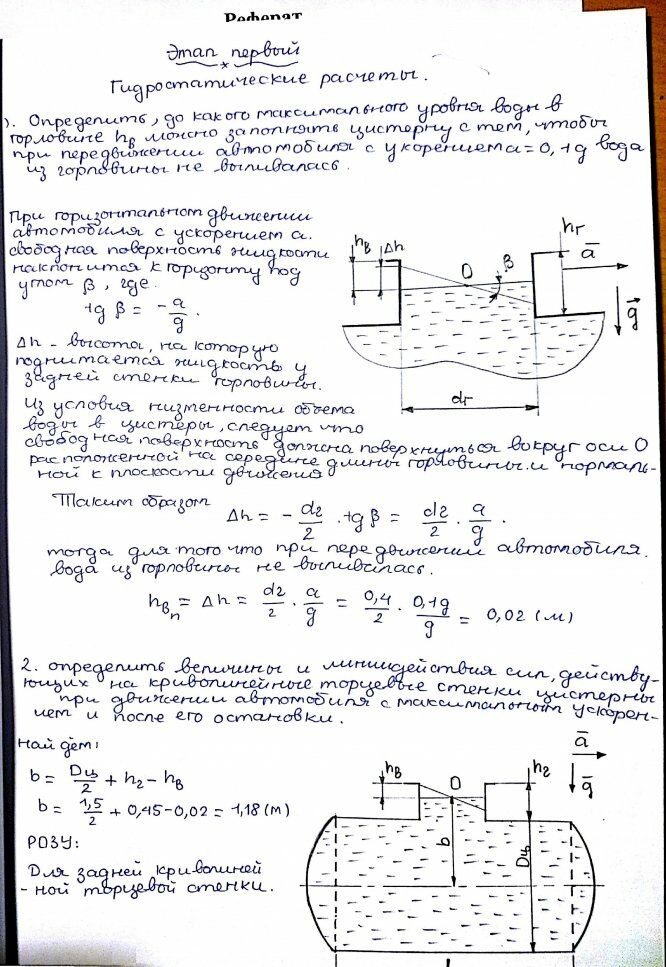 Реферат
Этап первый
Гидростатические расчеты.
). Определить, до какого максимального уровня воды в
горловине hв можно заполнять цистерну с тем, чтобы
при передвижении автомобиля с ускорением a = 0,1g вода
из горловины не выливалась.
При горизонтальном движении
автомобиля с ускорением a.
свободная поверхность жидкости
наклонится к горизонту под
углом β, где.
tg β = - a/g.
Δh - высота, на которую
поднимается жидкость у
задней стенки горловины.
hв Δh O β hг a̅ g⃗
dг
Из условия низменности объема
воды в цистеры, следует что
свободная поверхность должна поверхнуться вокруг оси O
расположенной на середине длины горловины и нормаль-
ной к плоскости движения
Таким образом
Δh = - d2/2 · tg β = d2/2 · a/g.
тогда для того что при передвижении автомобиля.
вода из горловины не выливалась.
hвп = Δh = d2/2 · a/g = 0,4/2 · 0,1g/g = 0,02 (м)
2. определить величины и линии действия сил, действу-
ющих на криволинейные торцевые стенки цистерны
при движении автомобиля с максимальным ускорен-
ием и после его остановки.
Найдем:
b = Dц/2 + h2 - hв
b = 1,5/2 + 0,45 - 0,02 = 1,18 (м)
РОЗУ:
Для задней криволиней
- ной торцевой стенки.
hв O h2 a̅ g̅
b Dц